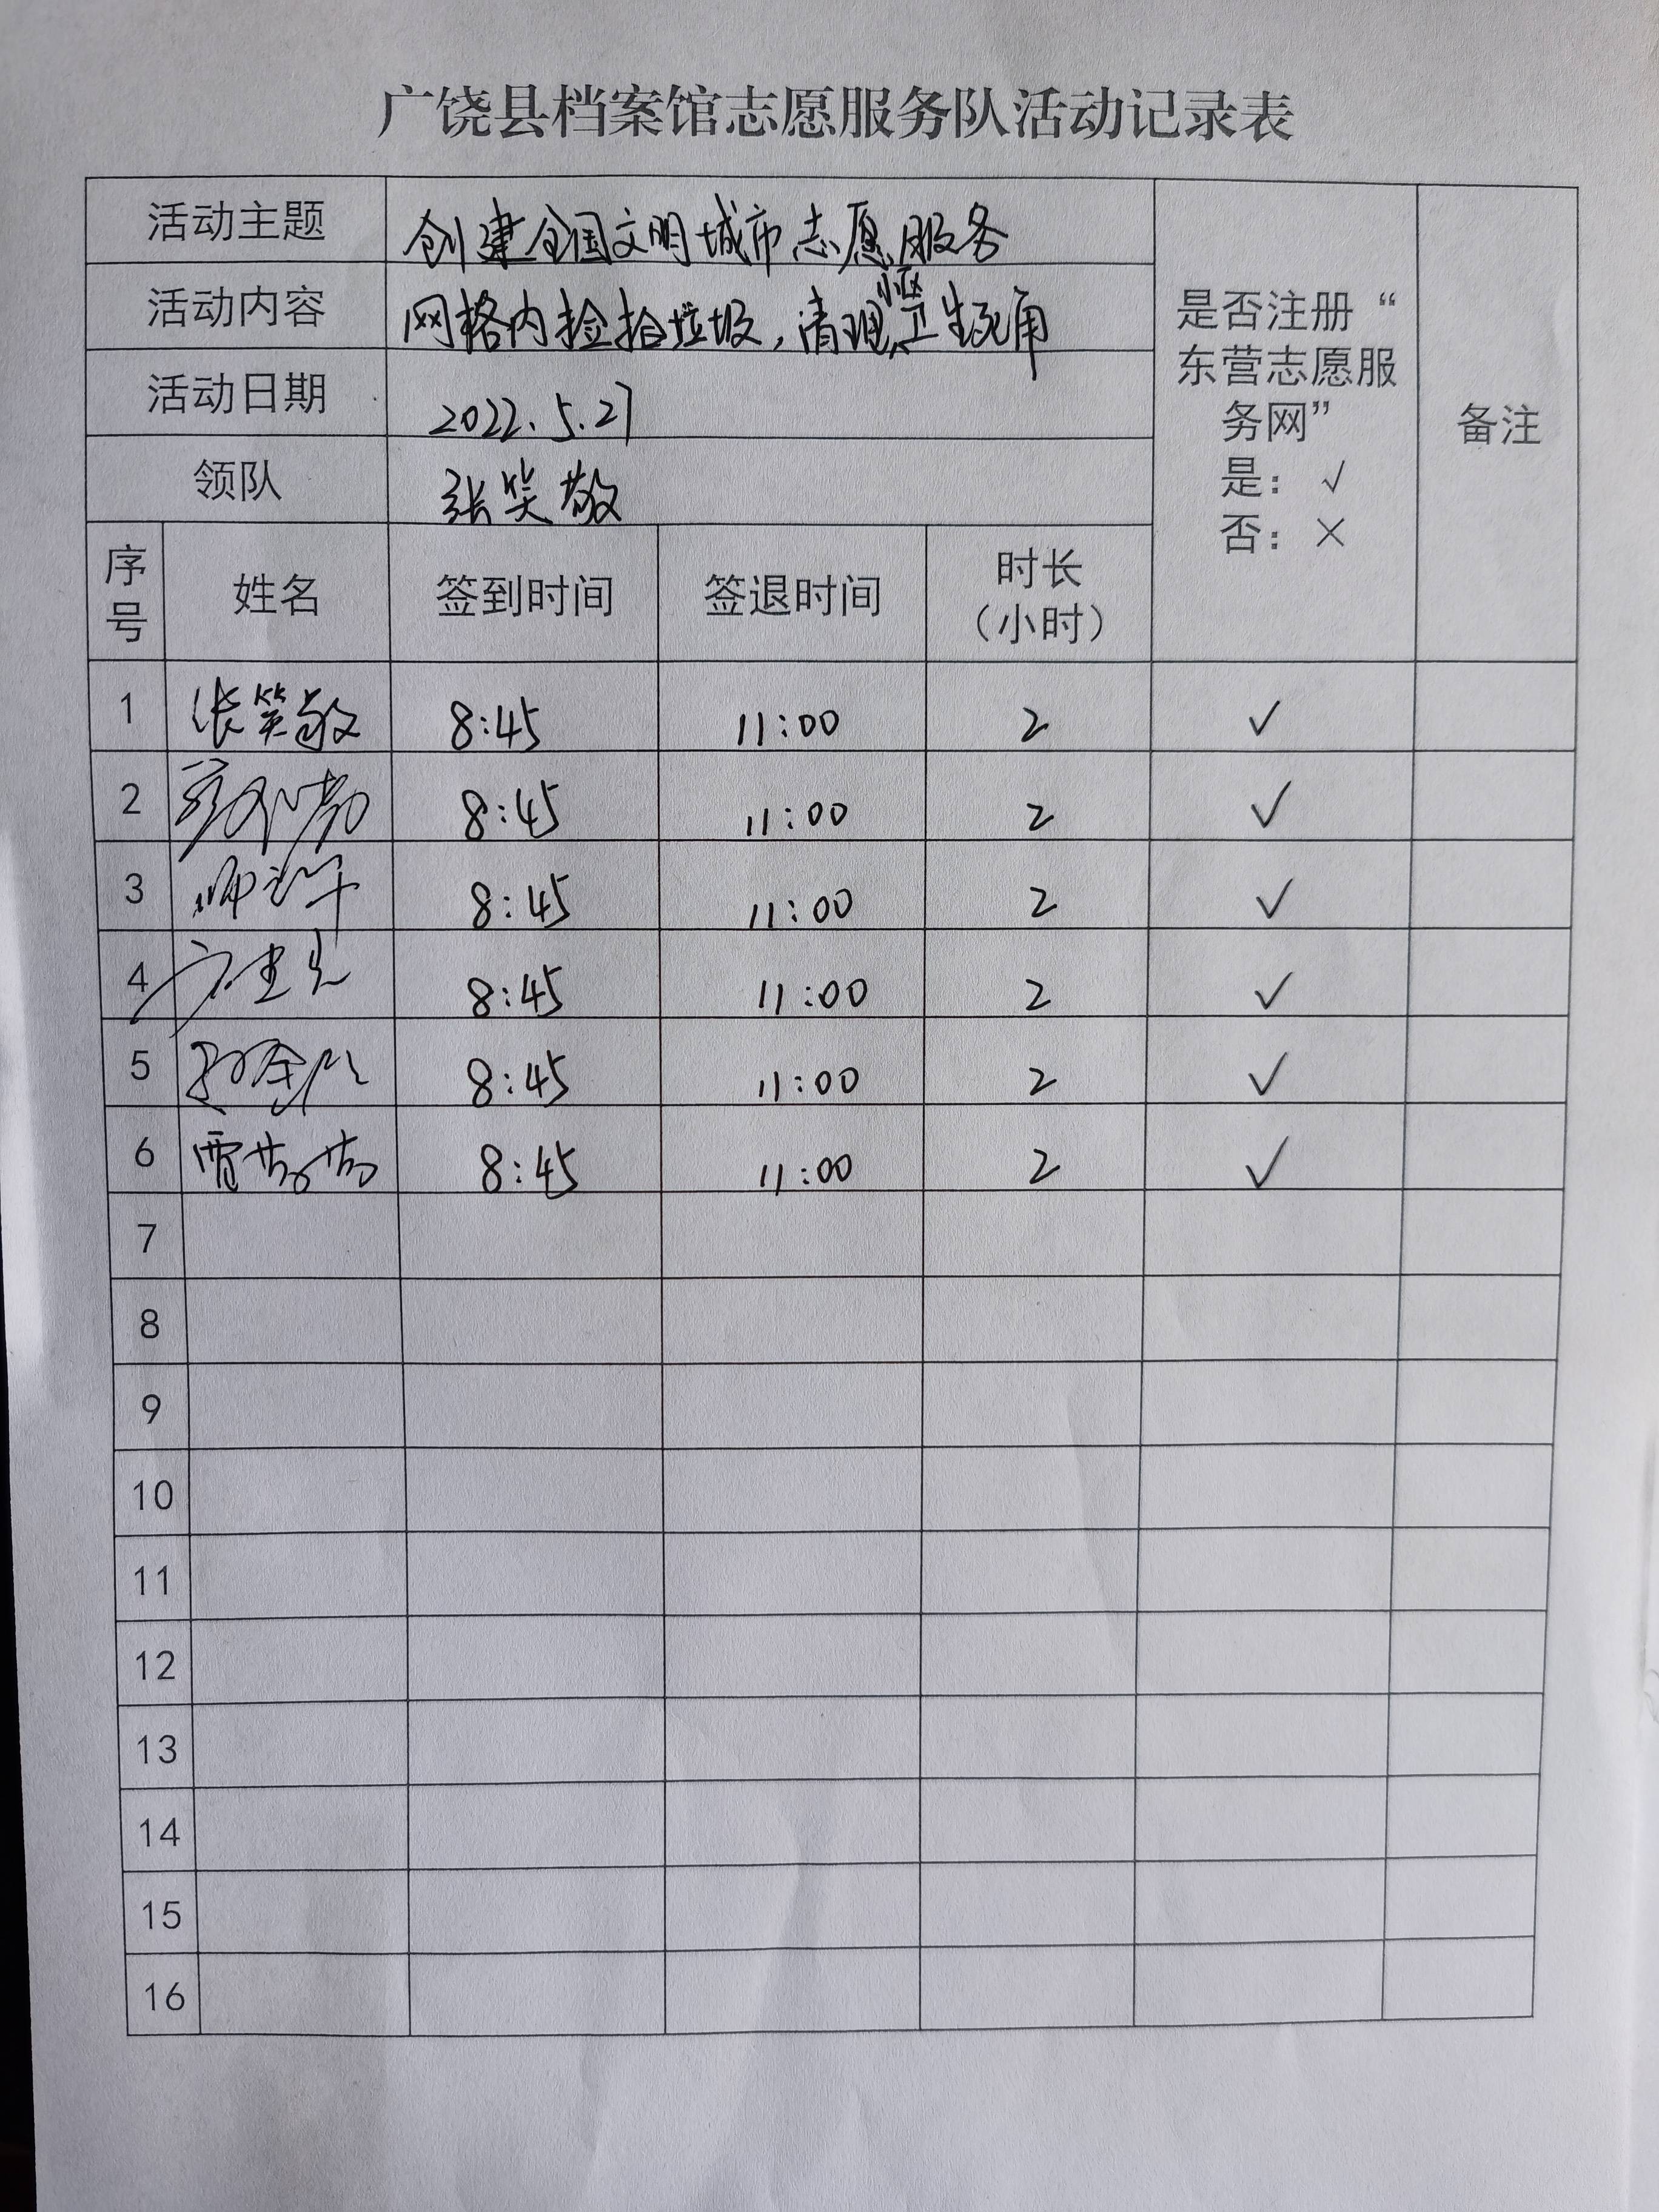 广饶县档案馆志愿服务队活动记录表
活动主题 创建全国文明城市志愿服务
活动内容 网格内捡拾垃圾，清理小区卫生死角
活动日期 2022.5.27
领队 张笑敬
是否注册“
东营志愿服
务网”
是：√
否：×
备注
序号 姓名 签到时间 签退时间 时长（小时）
1 张笑敬 8:45 11:00 2 √
2 8:45 11:00 2 √
3 8:45 11:00 2 √
4 8:45 11:00 2 √
5 8:45 11:00 2 √
6 贾芳芳 8:45 11:00 2 √
7
8
9
10
11
12
13
14
15
16